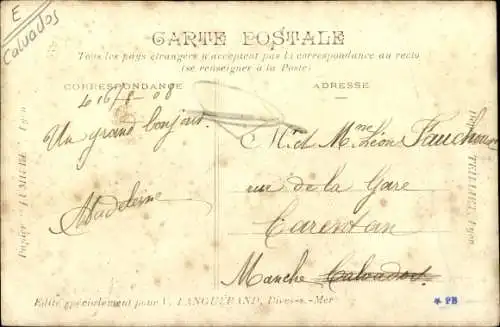 E
Calvados
CARTE POSTALE
Tous les pays étrangers n'acceptent pas la correspondance au recto
(se renseigner à la Poste)
CORRESPONDANCE
ADRESSE
16/8-08
Un grand bonjour.
Madeleine
M. et Mme Léon Fauchon
rue de la Gare
Carentan
Manche Calvados
Papier "LUMIÈRE" Lyon
Edité spécialement pour V. LANGUEBAND, Dives-s-Mer
* PB